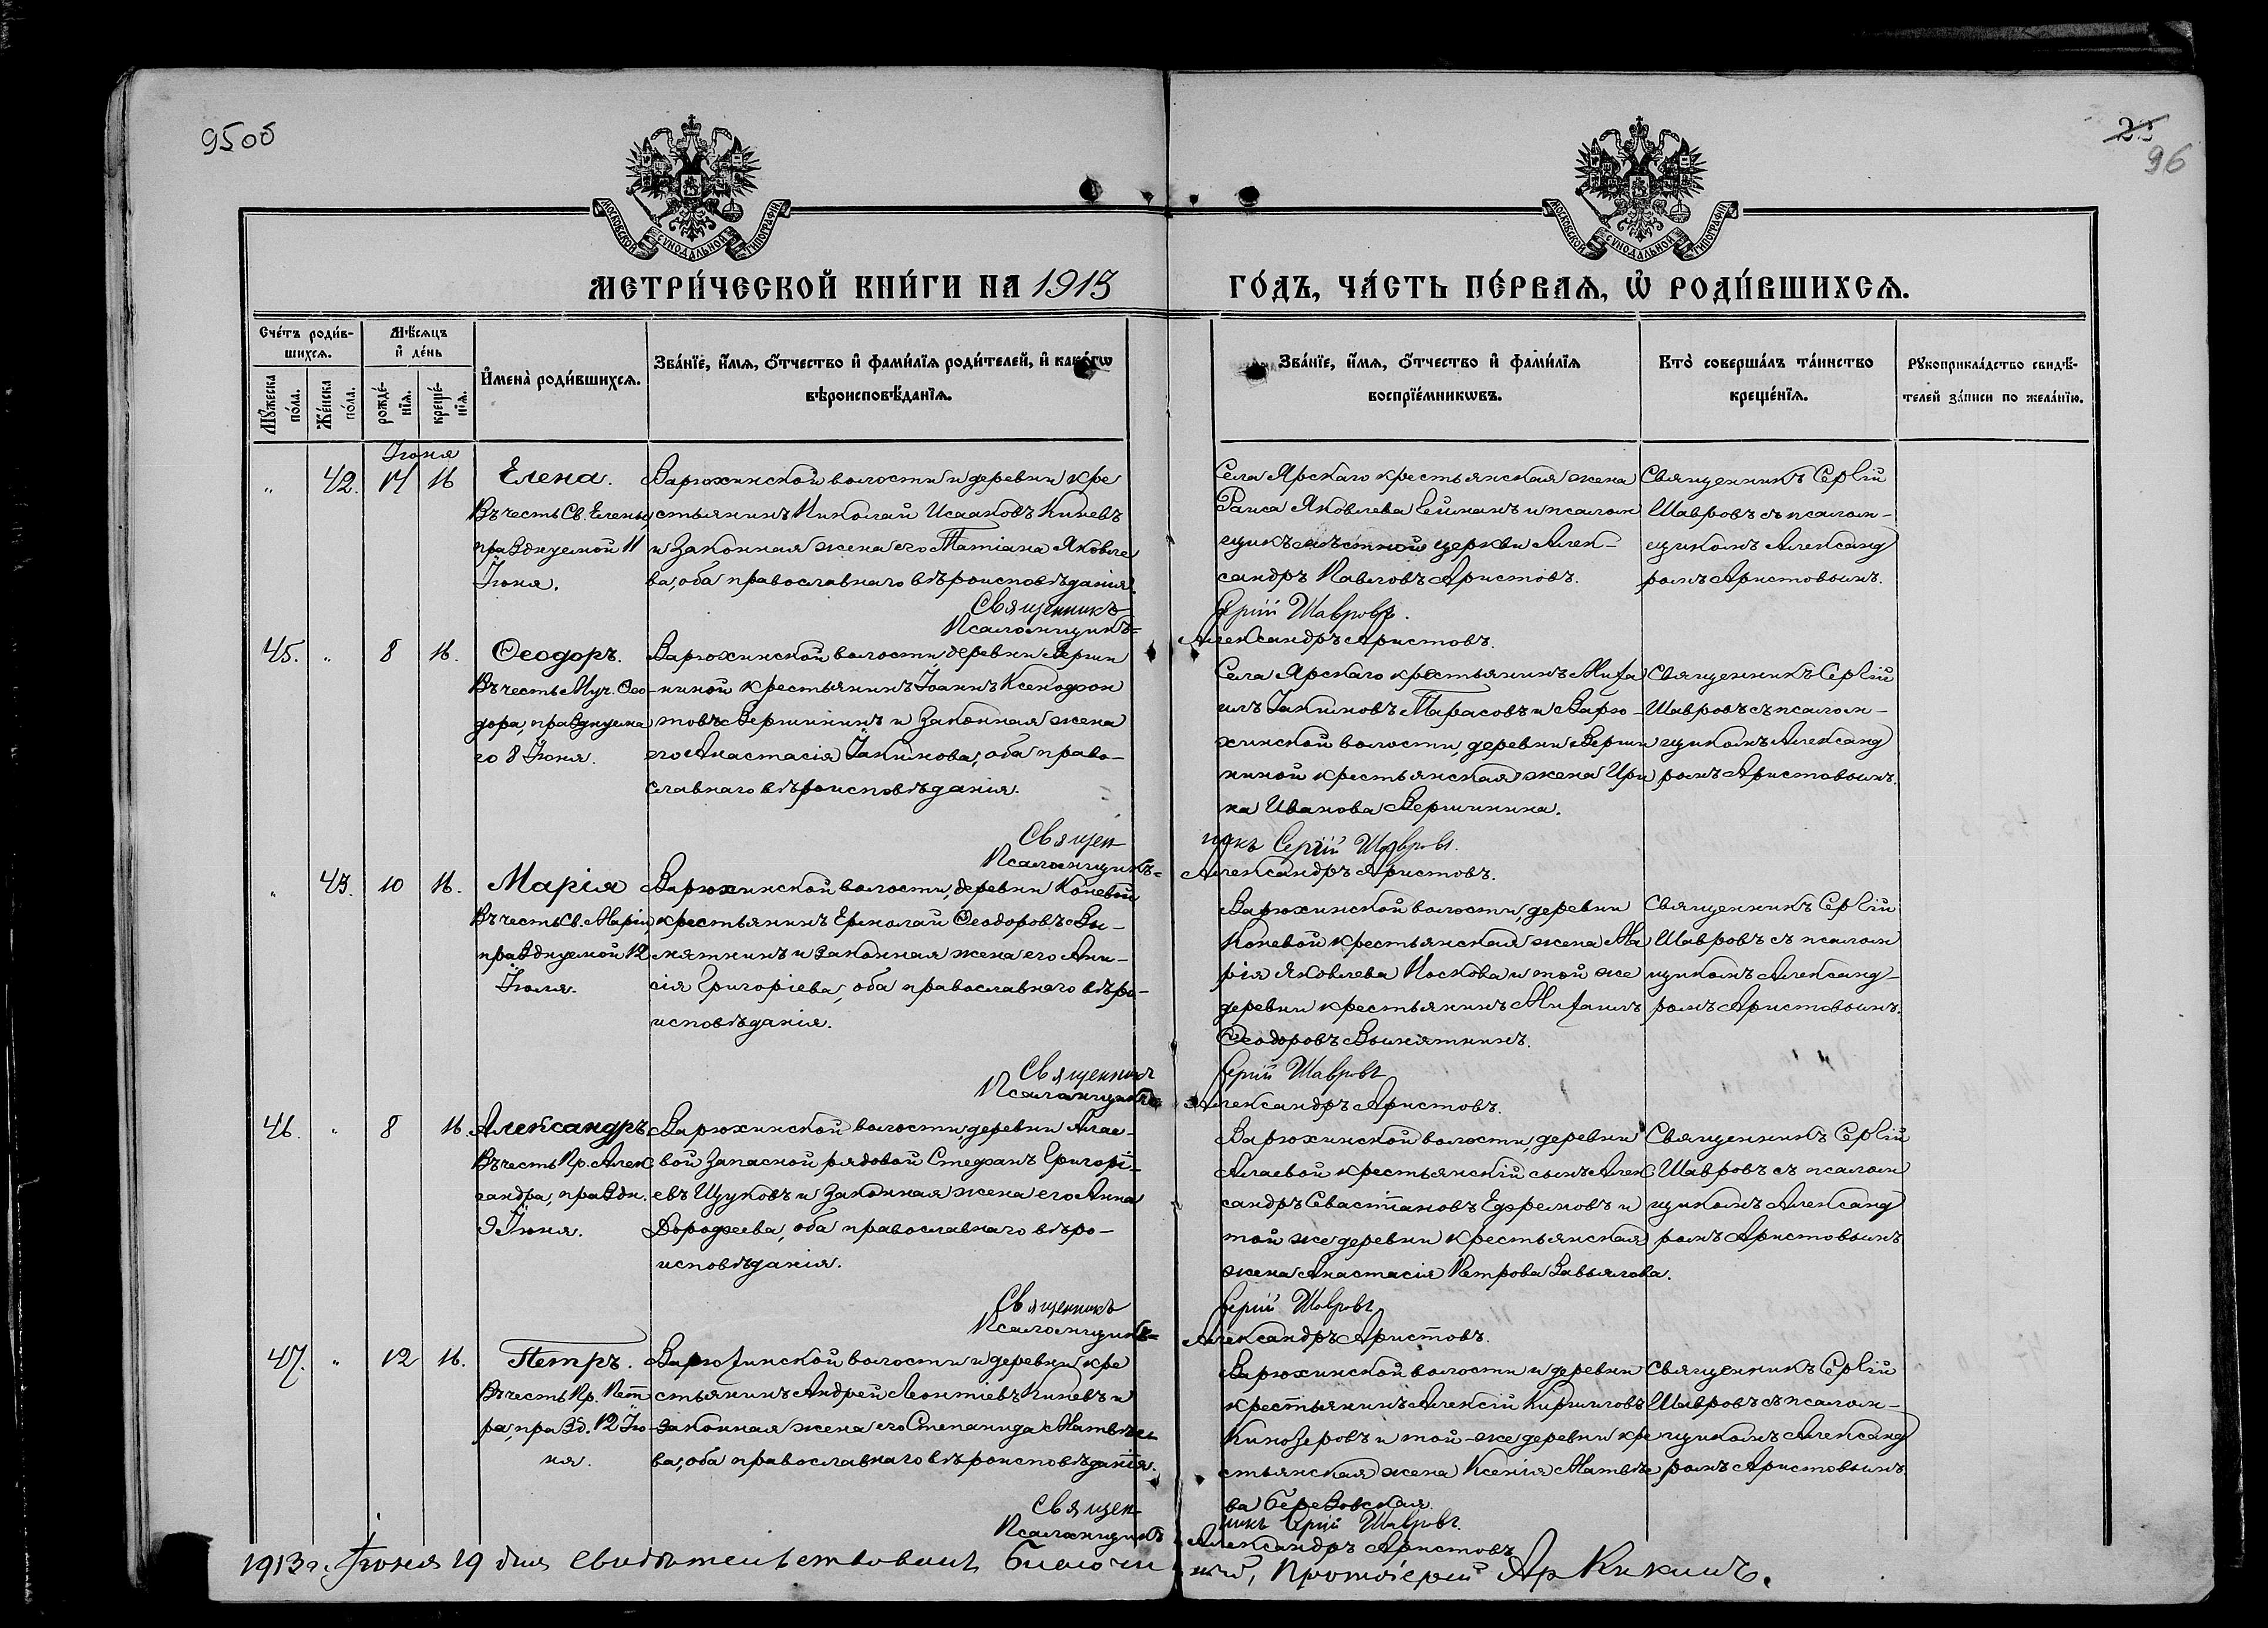 950б
25
96
МОСКОВСКОЙ СУНОДАЛЬНОЙ ТИПОГРАФІИ
МОСКОВСКОЙ СУНОДАЛЬНОЙ ТИПОГРАФІИ
МЕТРИ́ЧЕСКОЙ КНИ́ГИ НА 1913 ГО́ДЪ, ЧА́СТЬ ПЕ́РВАѦ, Ѡ҆ РОДИ́ВШИХСѦ.
Сче́тъ роди́в-
шихсѧ.
Мꙋ́жеска по́ла.
Же́нска по́ла.
Мѣ́сѧцъ
и҆ де́нь
рожде́-
нїѧ.
креще́-
нїѧ.
И҆мена̀ роди́вшихсѧ.
Зва́нїе, и҆́мѧ, ѻ҆́тчество и҆ фами́лїѧ роди́телей, и҆ како́гѡ
вѣроисповѣ́данїѧ.
Зва́нїе, и҆́мѧ, ѻ҆́тчество и҆ фами́лїѧ
воспрїе́мникѡвъ.
Кто̀ соверша́лъ та́инство
креще́нїѧ.
Рꙋкоприкла́дство свидѣ́-
телей за́писи по жела́нїю.
Іюня
" 42. 14 16
Елена.
Въ честь Св. Елены,
празднуемой 11
Іюня.
Варюхинской волости и деревни кре
стьянинъ Николай Исааковъ Киневъ
и законная жена его Татіана Яковле
ва, оба православнаго вѣроисповѣданія.
Села Ярскаго крестьянская жена
Раиса Яковлева Гейманъ и псалом
щикъ мѣстной церкви Алек-
сандръ Павловъ Аристовъ.
Священникъ Сергій
Шавровъ съ псалом-
щикомъ Александ
ромъ Аристовымъ.
Священникъ Сергій Шавровъ.
Псаломщикъ= Александръ Аристовъ.
45. " 8 16.
Ѳеодоръ.
Въ честь Муч. Ѳео-
дора, празднуема
го 8 Іюня.
Варюхинской волости деревни Верши
ниной крестьянинъ Іоаннъ Ксенофон
товъ Вершининъ и законная жена
его Анастасія Іакимова, оба право-
славнаго вѣроисповѣданія.
Села Ярскаго крестьянинъ Миха
илъ Іакимовъ Тарасовъ и Варю-
хинской волости, деревни Верши
ниной крестьянская жена Ири
на Иванова Вершинина.
Священникъ Сергій
Шавровъ съ псалом-
щикомъ Александ
ромъ Аристовымъ.
Священ никъ Сергій Шавровъ.
Псаломщикъ= Александръ Аристовъ.
" 43. 10 16.
Марія
Въ честь Св. Маріи,
празднуемой 12
Іюля.
Варюхинской волости, деревни Коневой
крестьянинъ Ермолай Ѳеодоровъ Вы-
мяткинъ и законная жена его Ани-
сія Григоріева, оба православнаго вѣро-
исповѣданія.
Варюхинской волости, деревни
Коневой крестьянская жена Ма
рія Яковлева Носкова и той же
деревни крестьянинъ Михаилъ
Ѳеодоровъ Вымяткинъ.
Священникъ Сергій
Шавровъ съ псалом
щикомъ Александ-
ромъ Аристовымъ.
Священникъ Сергій Шавровъ
Псаломщикъ= Александръ Аристовъ.
46. " 8 16
Александръ
Въ честь Пр. Алек
сандра, праздн.
9 Іюня.
Варюхинской волости, деревни Алае-
вой запасной рядовой Стефанъ Григорі-
евъ Щуковъ и законная жена его Анна
Дорофеева, оба православнаго вѣро-
исповѣданія.
Варюхинской волости, деревни
Алаевой крестьянскій сынъ Алек
сандръ Севастіановъ Ефремовъ и
той же деревни крестьянская
жена Анастасія Петрова Завьялова.
Священникъ Сергій
Шавровъ съ псалом
щикомъ Александ
ромъ Аристовымъ
Священникъ Сергій Шавровъ
Псаломщикъ= Александръ Аристовъ.
47. " 12 16.
Петръ.
Въ честь Пр. Пет
ра, празд. 12 Ію-
ня.
Варюхинской волости и деревни кре
стьянинъ Андрей Леонтіевъ Киневъ и
законная жена его Степанида Матвѣе
ва, оба православнаго вѣроисповѣданія.
Варюхинской волости и деревни
крестьянинъ Алексій Кирилловъ
Кинозеровъ и той-же деревни кре
стьянская жена Ксенія Матвѣе
ва Березовская.
Священникъ Сергій
Шавровъ съ псалом-
щикомъ Александ
ромъ Аристовымъ.
Священ никъ Сергій Шавровъ.
Псаломщикъ Александръ Аристовъ
1913 г. Іюня 19 дня свидѣтельствовалъ благочинный, Протоіерей Ар Кикинъ.